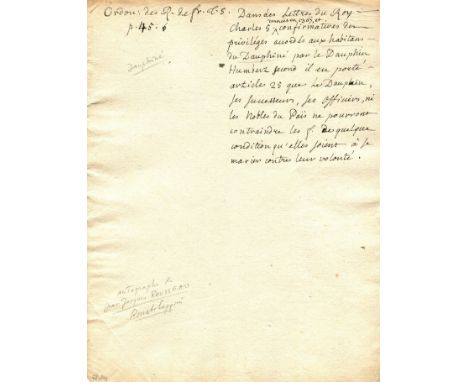 Ordon. des R. de fr. t. 5.
p. 45. 6
Dans des Lettres du Roy
Charles 5 confirmatives des
privilèges acordés aux habitans
du Dauphiné par le Dauphin
Humbert second il est porté
article 25 que Le Dauphin,
ses successeurs, ses officiers, ni
les Nobles du Païs ne pourront
contraindre les f. de quelque
condition qu'elles soient à se
marier contre leur volonté.
Dauphiné
autographe de
Jean-Jacques ROUSSEAU